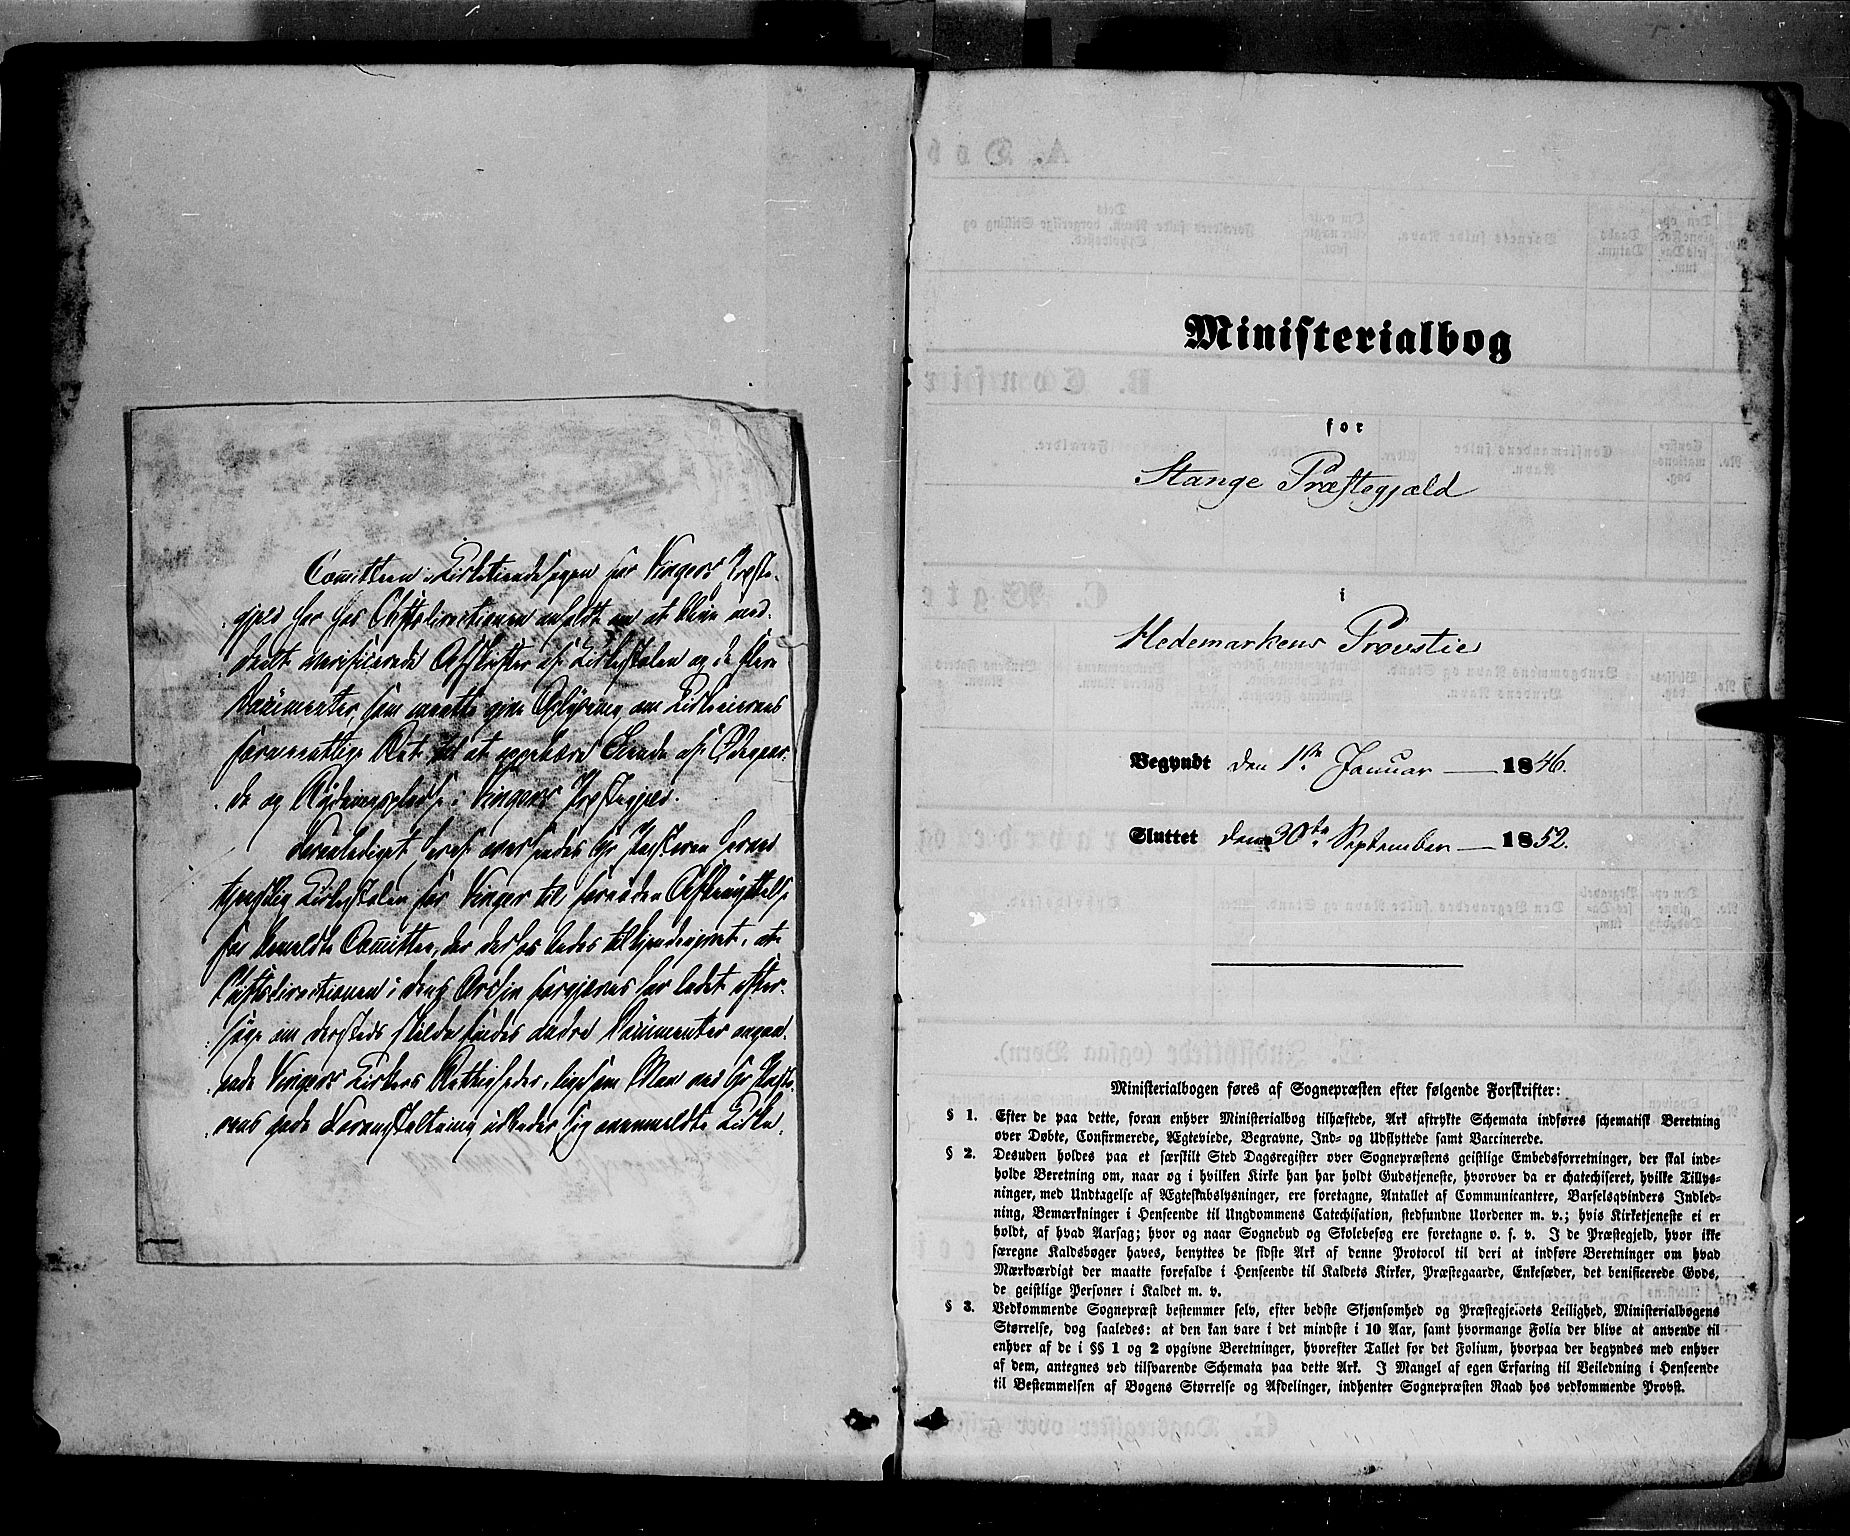 Comitteen i Kirketiendesagen for Vingers Præste-
gjeld har hos Stiftsdirectionen anholdt om at blive med-
deelt verificerede Afskrifter af Kirkestolen og de flere
Documenter, som maatte give Oplysning om Kirkeeierens
formeentlige Ret til at oppebære Tiende af Ødegaar-
de og Rydningspladse i Vingers Præstegjeld.
I overs Hr Pastoren herved
Kirkestolen for Vinger til fornøden Afbenyttelse
for bemeldte Comittee, der derhos bedes tilkjendegivet, at
Stiftsdirectionen i dens Archiv forgjeves har ladet efter-
søge om dersteds skulde findes andre Documenter angaa-
ende Vingers Kirkes Rettigheder, ligesom Man ved Hr Pasto-
rens gode Foranstaltning udbeder sig ovenmeldte Kirke
Ministerialbog
for
Stange Præstegjæld
i
Hedemarkens Provstie
Begyndt den 1ste Januar 1846.
Sluttet den 30te September 1852.
Ministerialbogen føres af Sognepræsten efter følgende Forskrifter:
§ 1. Efter de paa dette, foran enhver Ministerialbog tilhæftede, Ark aftrykte Schemata indføres schematisk Beretning
over Døbte, Confirmerede, Ægteviede, Begravne, Ind- og Udflyttede samt Vaccinerede.
§ 2. Desuden holdes paa et særskilt Sted Dagsregister over Sognepræstens geistlige Embedsforretninger, der skal inde-
holde Beretning om, naar og i hvilken Kirke han har holdt Gudstjeneste, hvorover da er chatechiseret, hvilke Tillys-
ninger, med Undtagelse af Ægteskabslysninger, ere foretagne, Antallet af Communicantere, Barselqvinders Indled-
ning, Bemærkninger i Henseende til Ungdommens Catechisation, stedfundne Uordener m. v.; hvis Kirketjeneste ei er
holdt, af hvad Aarsag; hvor og naar Sognebud og Skolebesøg ere foretagne o. s. v. I de Præstegjeld, hvor ikke
særegne Kaldsbøger haves, benyttes de sidste Ark af denne Protocol til deri at indføre Beretninger om hvad
Mærkværdigt der maatte forefalde i Henseende til Kaldets Kirker, Præstegaarde, Enkesæder, det benificerede Gods,
de geistlige Personer i Kaldet m. v.
§ 3. Vedkommende Sognepræst bestemmer selv, efter bedste Skjønsomhed og Præstegjeldets Leilighed, Ministerialbogens
Størrelse, dog saaledes: at den kan vare i det mindste i 10 Aar, samt hvormange Folia der blive at anvende til
enhver af de i §§ 1 og 2 opgivne Beretninger, hvorefter Tallet for det Folium, hvorpaa der begyndes med enhver
af dem, antegnes ved tilsvarende Schemata paa dette Ark. I Mangel af egen Erfaring til Veiledning i Henseende
til Bestemmelsen af Bogens Størrelse og Afdelinger, indhenter Sognepræsten Raad hos vedkommende Provst.